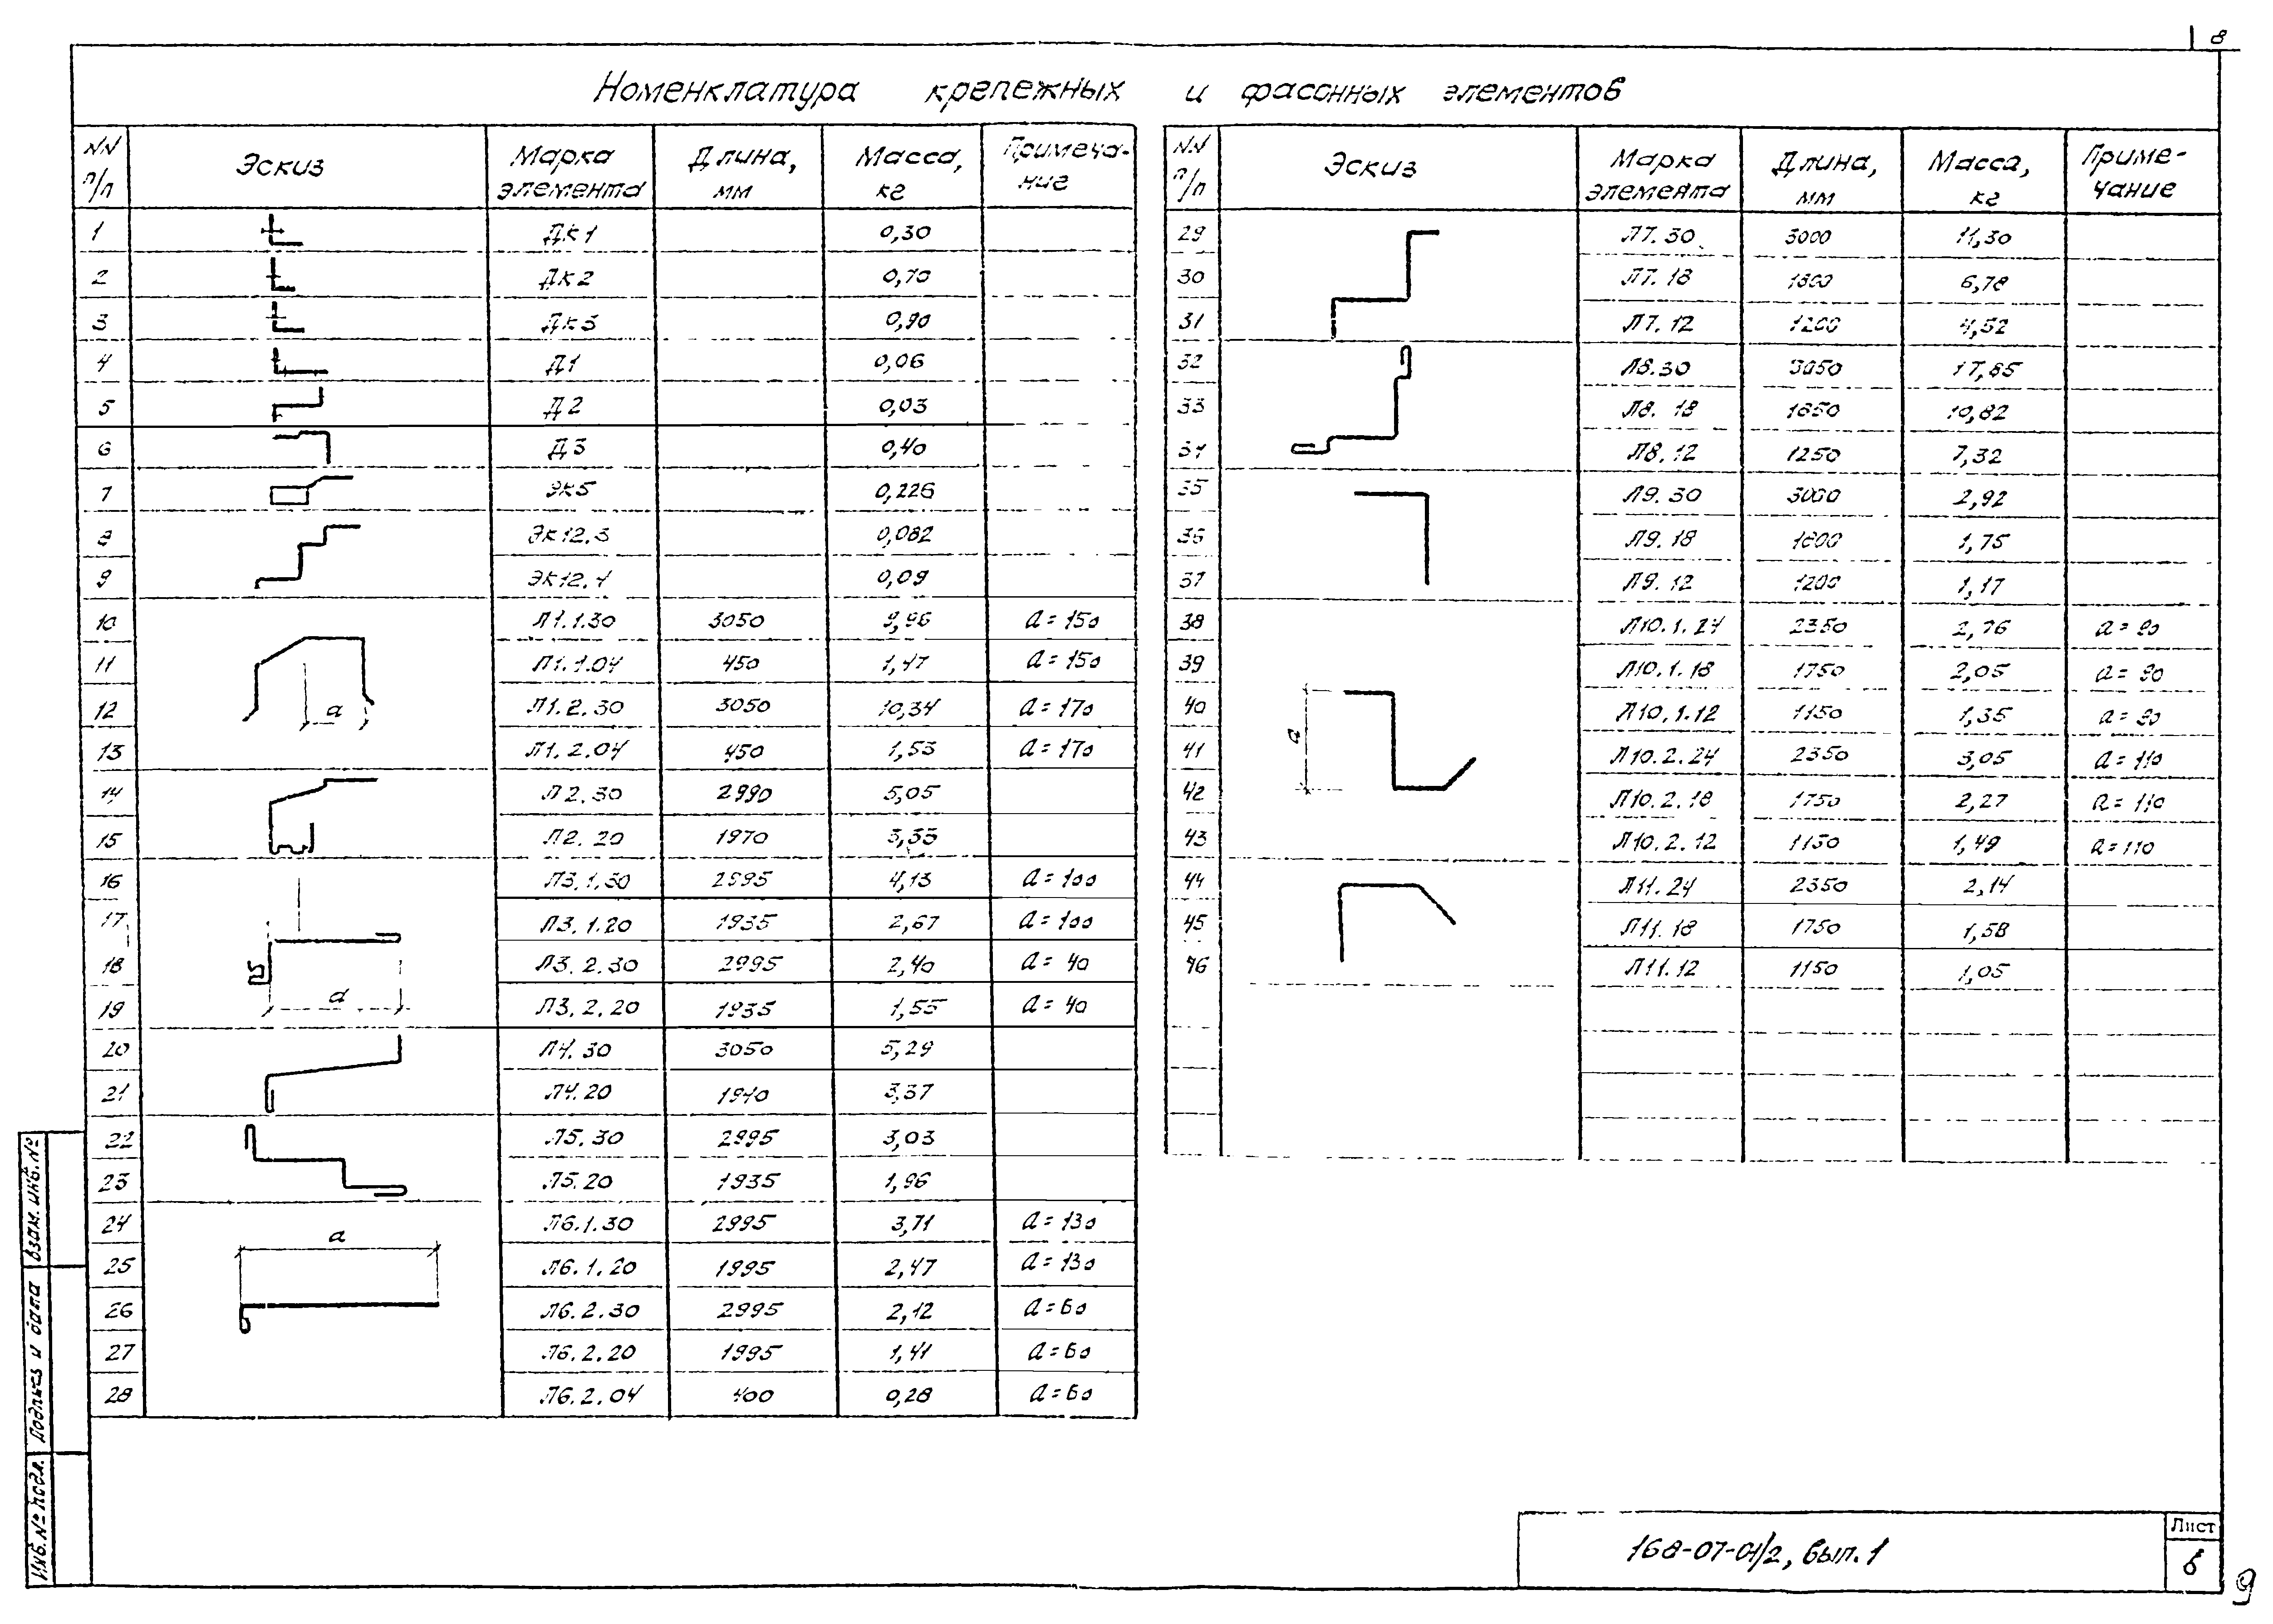 8
Номенклатура крепежных и фасонных элементов
NN п/п Эскиз Марка элемента Длина, мм Масса, кг Примеча-ние
1 ДК1 0,30
2 ДК2 0,70
3 ДК3 0,90
4 Д1 0,06
5 Д2 0,03
6 Д3 0,40
7 ЭК5 0,226
8 ЭК12.3 0,082
9 ЭК12.4 0,09
10 Л1.1.30 3050 9,96 a=150
11 Л1.1.04 450 1,47 a=150
12 Л1.2.30 3050 10,34 a=170
13 Л1.2.04 450 1,53 a=170
a
14 Л2.30 2990 5,05
15 Л2.20 1970 3,33
16 Л3.1.30 2995 4,13 a=100
17 Л3.1.20 1935 2,67 a=100
18 Л3.2.30 2995 2,40 a=40
19 Л3.2.20 1935 1,55 a=40
a
20 Л4.30 3050 5,29
21 Л4.20 1940 3,37
22 Л5.30 2995 3,03
23 Л5.20 1935 1,96
24 Л6.1.30 2995 3,71 a=130
25 Л6.1.20 1995 2,47 a=130
26 Л6.2.30 2995 2,12 a=60
27 Л6.2.20 1995 1,41 a=60
28 Л6.2.04 400 0,28 a=60
a
NN п/п Эскиз Марка элемента Длина, мм Масса, кг Приме-чание
29 Л7.30 3000 11,30
30 Л7.18 1800 6,78
31 Л7.12 1200 4,52
32 Л8.30 3050 17,85
33 Л8.18 1850 10,82
34 Л8.12 1250 7,32
35 Л9.30 3000 2,92
36 Л9.18 1800 1,75
37 Л9.12 1200 1,17
38 Л10.1.24 2350 2,76 a=90
39 Л10.1.18 1750 2,05 a=90
40 Л10.1.12 1150 1,35 a=90
41 Л10.2.24 2350 3,05 a=110
42 Л10.2.18 1750 2,27 a=110
43 Л10.2.12 1150 1,49 a=110
a
44 Л11.24 2350 2,14
45 Л11.18 1750 1,58
46 Л11.12 1150 1,05
Взам. инв. №
Подпись и дата
Инв. № подл.
168-07-01/2, вып. 1
Лист
6
9